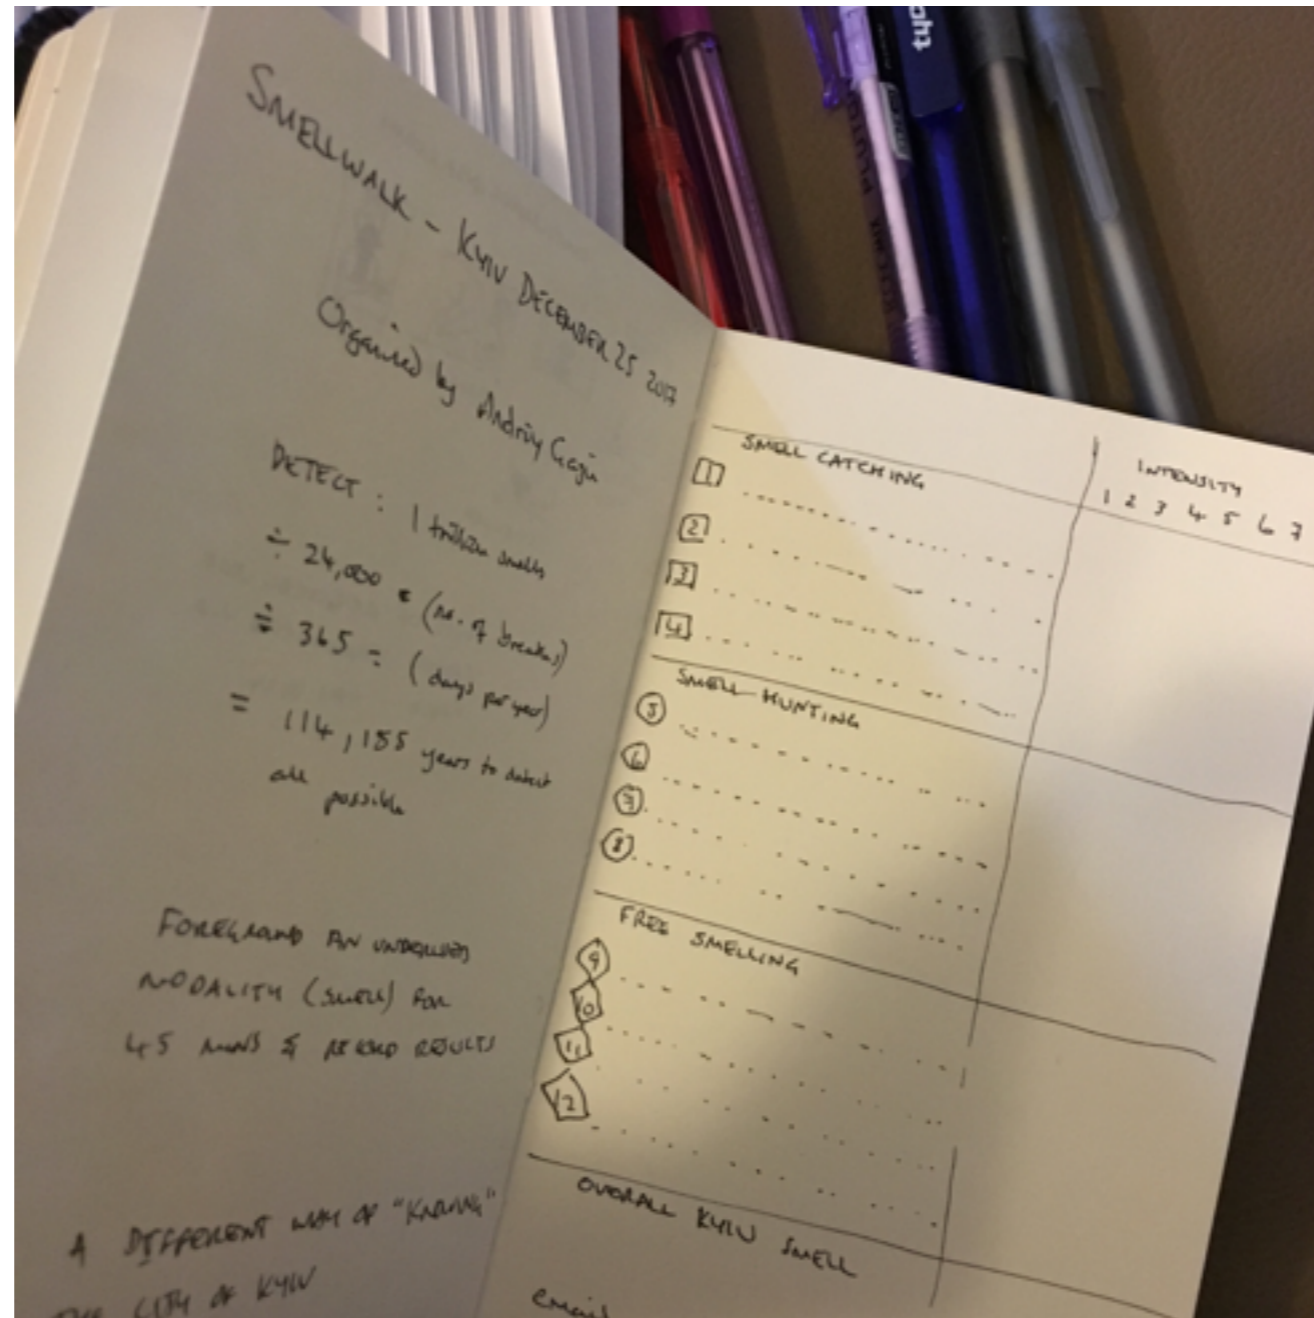 SMELLWALK - KYIV DECEMBER 25 2017
Organised by Andriy
DETECT : 1 trillion smells
÷ 24,000 (no. of breaths)
÷ 365 = (days per year)
= 114,155 years to detect
all possible
FOREGROUND AN
MODALITY (SMELL) FOR
45 MINS & RECORD RESULTS
A DIFFERENT WAY OF "KNOWING"
THE CITY OF KYIV
SMELL CATCHING
INTENSITY
1 2 3 4 5 6 7
1
2
3
4
SMELL HUNTING
5
6
7
8
FREE SMELLING
9
10
11
12
OVERALL KYIV SMELL
email
tyco